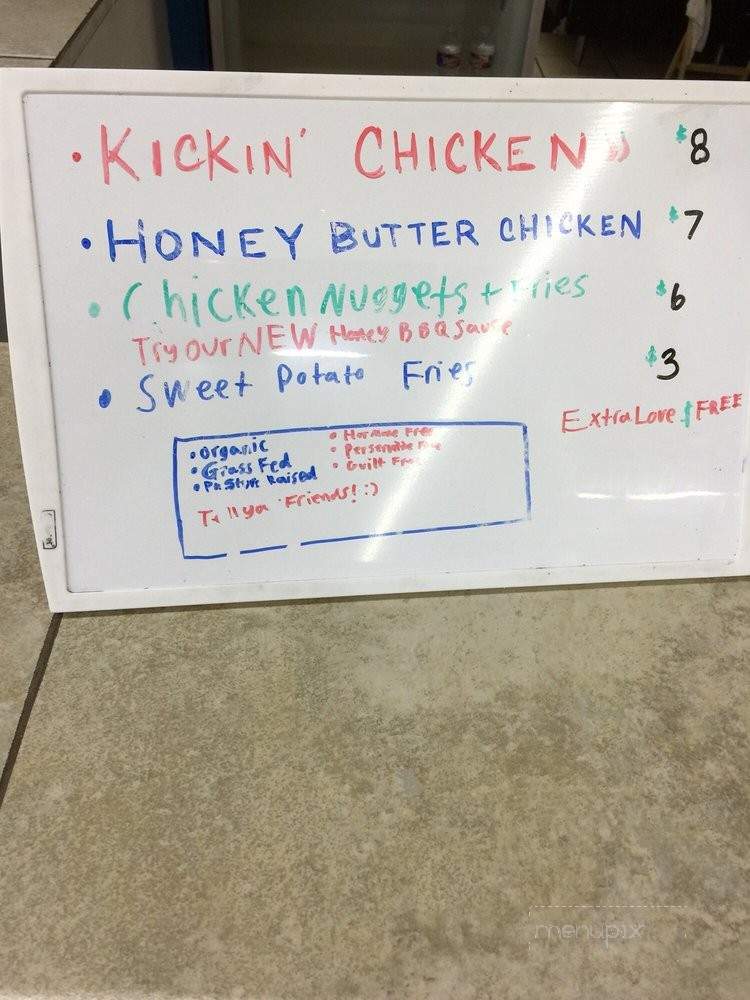 • KICKIN' CHICKEN )) $8
• HONEY BUTTER CHICKEN $7
• Chicken Nuggets + Fries $6
Try our NEW Honey BBQ Sauce
• Sweet Potato Fries $3
Extra Love $ FREE
• Organic
• Grass Fed
• Pasture Raised
• Hormone Free
• Perservative Free
• Guilt Free
Tell ya Friends! :)
menupix